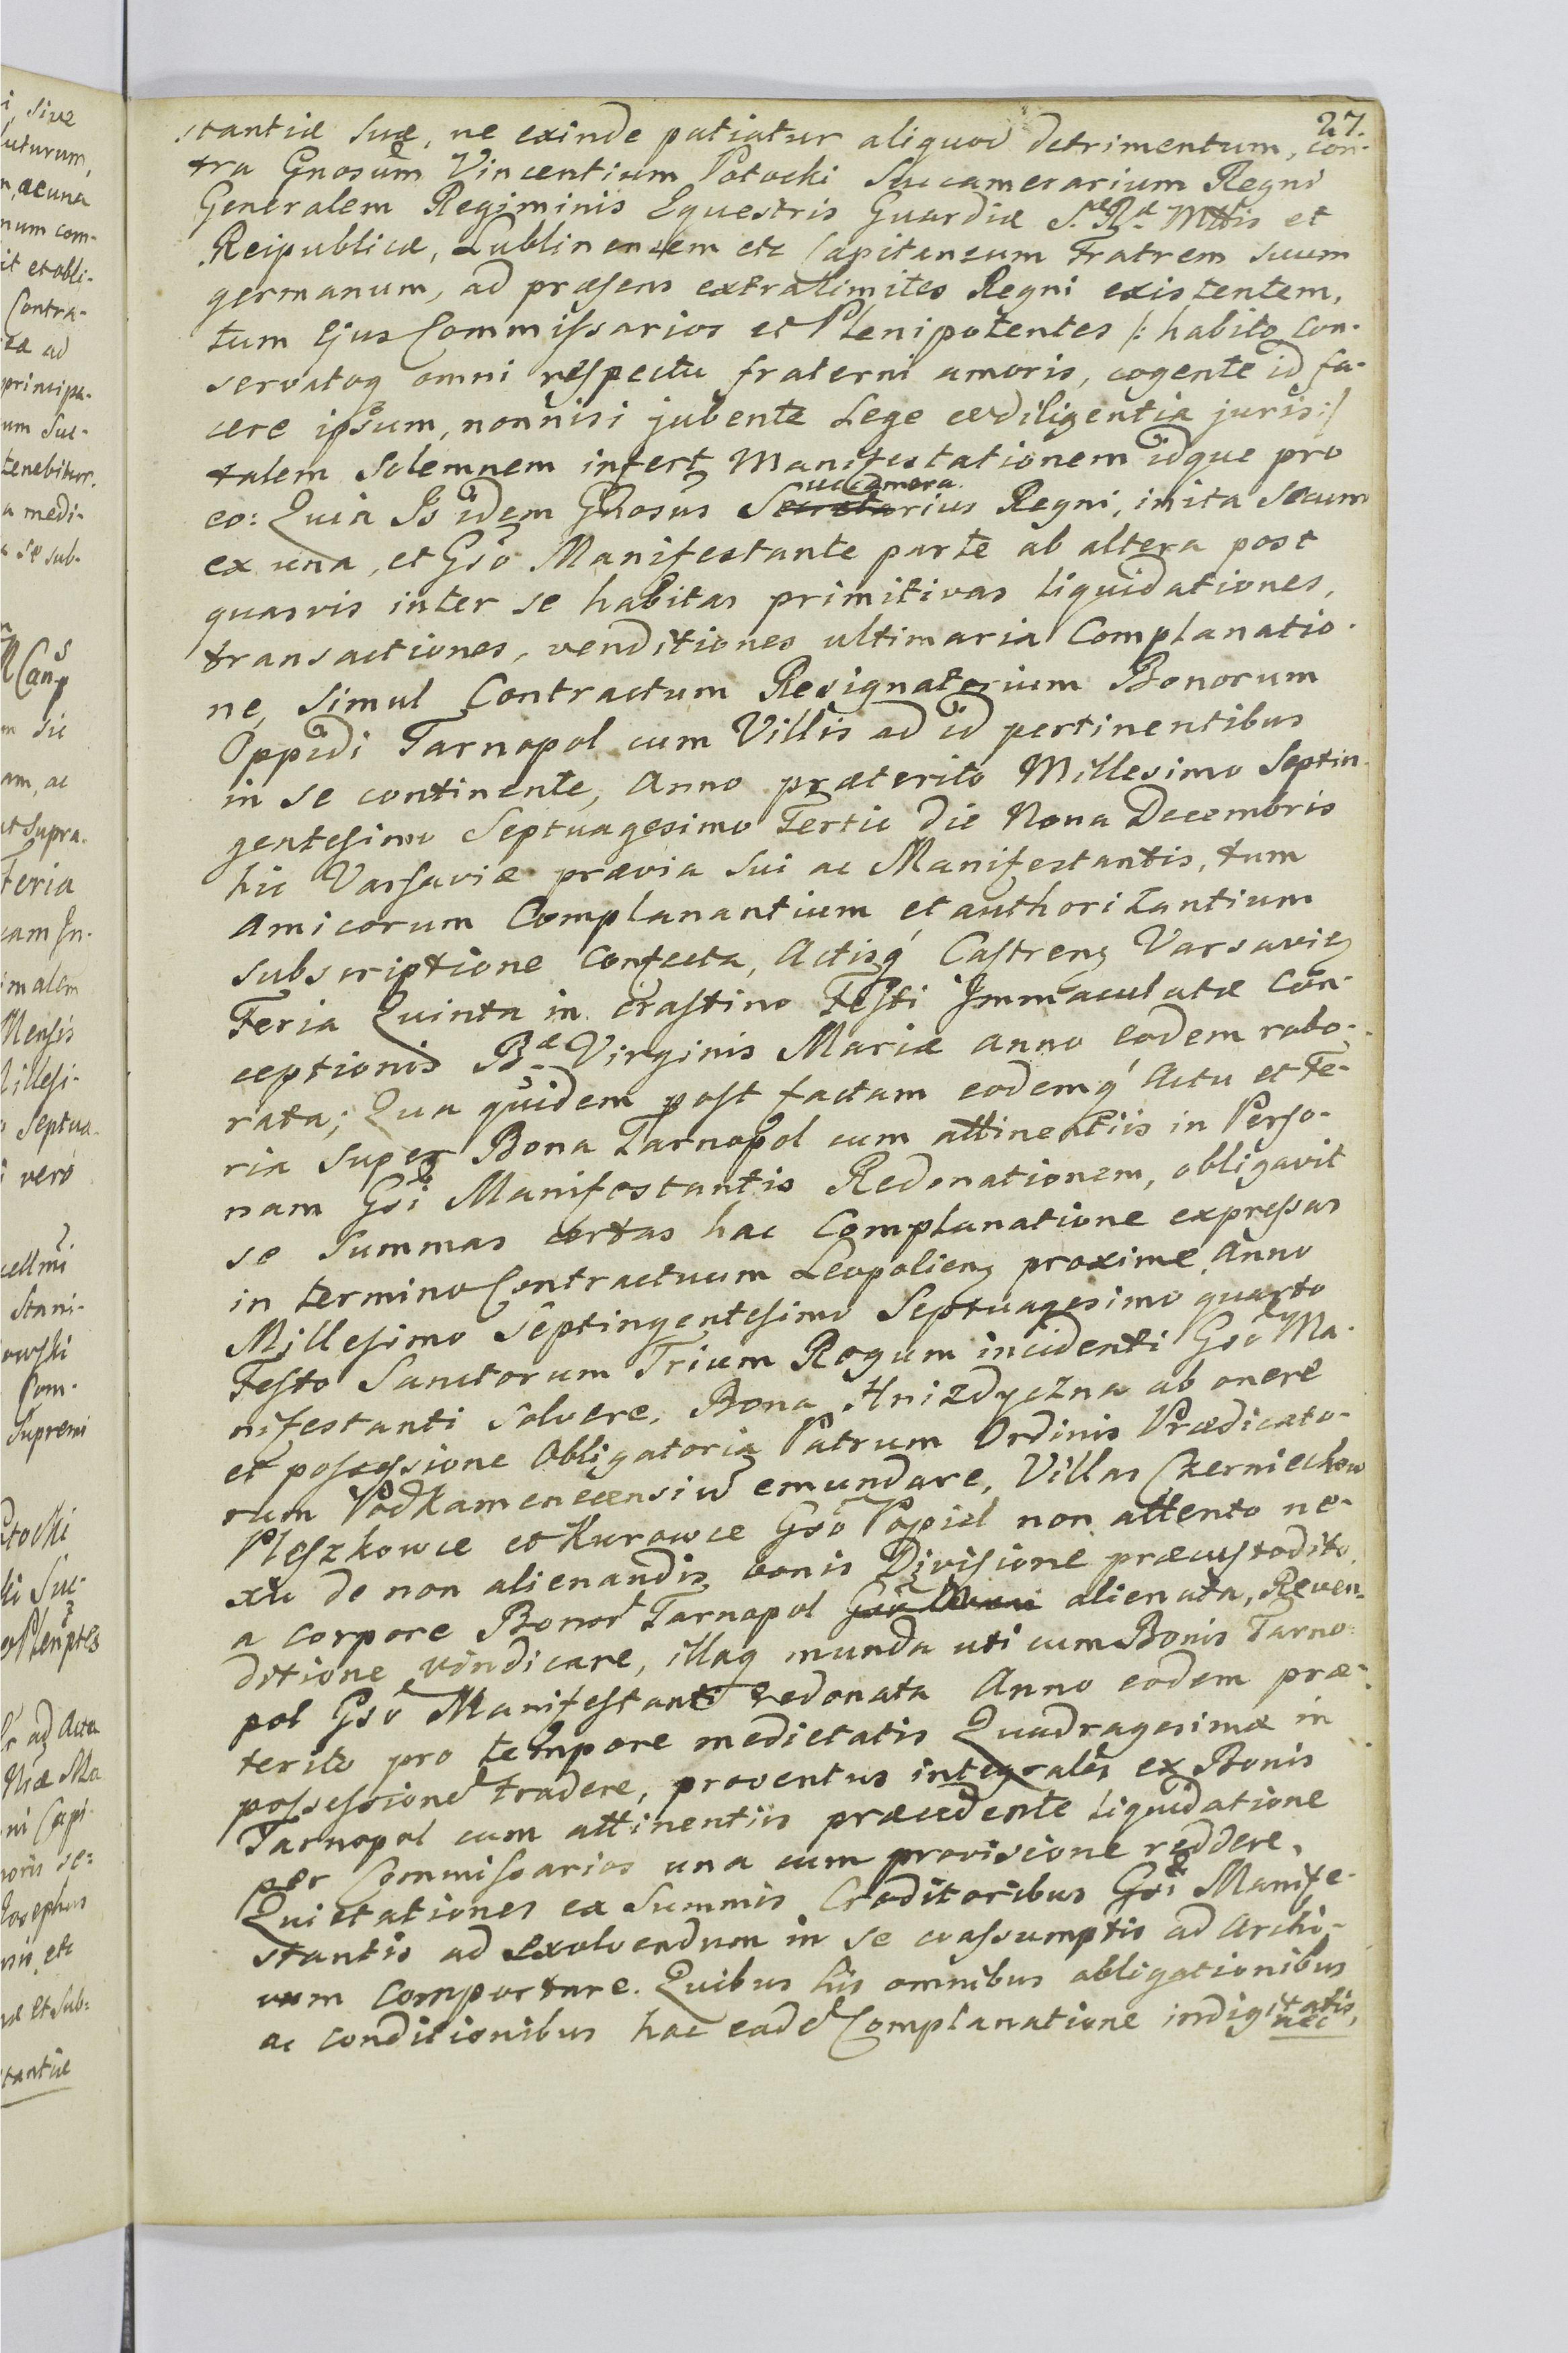 27.
stantiæ suæ, ne exinde patiatur aliquod detrimentum, con-
tra Gnosum Vincentium Potocki Succamerarium Regni
Generalem Regiminis Equestris Guardiæ S.æ R.æ Mttis et
Reipublicæ, Lublinensem etc Capitaneum Fratrem suum
germanum, ad præsens extra limites Regni existentem,
tum Ejus Commissarios et Plenipotentes /: habito con-
servatoq omni respectu fraterni amoris, cogente id fa-
cere ipsum, nonnisi jubente Lege ac diligentia juris :/
talem solemnem infert Manifestationem idque pro
eo: Quia Is idem Gnosus Succamerarius Regni, inita secum
ex una, et Gso Manifestante parte ab altera post
quasvis inter se habitas primitivas liquidationes,
transactiones, venditiones ultimaria Complanatio-
ne, simul Contractum Resignatorium Bonorum
Oppidi Tarnopol cum Villis ad id pertinentibus
in se continente, Anno præterito Millesimo Septin-
gentesimo Septuagesimo Tertio die Nona Decembris
hic Varsaviæ prævia sui ac Manifestantis, tum
Amicorum Complanantium et authorizantium
subscriptione confecta, Actisq Castren Varsavien
Feria Quinta in crastino Festi Immaculatæ Con-
ceptionis B.æ Virginis Mariæ anno eodem robo-
rata; Qua quidem post factam eodemq Actu et Fe-
ria super Bona Tarnopol cum attinentiis in Perso-
nam Gsi Manifestantis Redonationem, obligavit
se summas certas hac Complanatione expressas
in termino Contractuum Leopolien proxime Anno
Millesimo Septingentesimo Septuagesimo quarto
Festo Sanctorum Trium Regum incidenti Gso Ma-
nifestanti solvere, Bona Hnizdyczna ab onere
et possessione Obligatoria Patrum Ordinis Prædicato-
rum Podkamenecensiu emundare, Villas Czerniechow
Pleszkowce et Kurowce Gso Popiel non attento ne-
xu de non alienandis bonis Divisione præcustodito,
a corpore Bonor Tarnopol alienata, Reven-
ditione vindicare, illaq munda uti cum Bonis Tarno-
pol Gso Manifestanti redonata Anno eodem præ-
terito pro tempore medietatis Quadragesimæ in
possessione tradere, proventus integrales ex Bonis
Tarnopol cum attinentiis præcedente liquidatione
per Commissarios una cum provisione reddere,
Quietationes ex Summis Creditoribus Gsi Manife-
stantis ad exolvendum in se coassumptis ad Archi-
vum comportare. Quibus his omnibus obligationibus
ac conditionibus hac eade Complanatione indigitatis,
nec